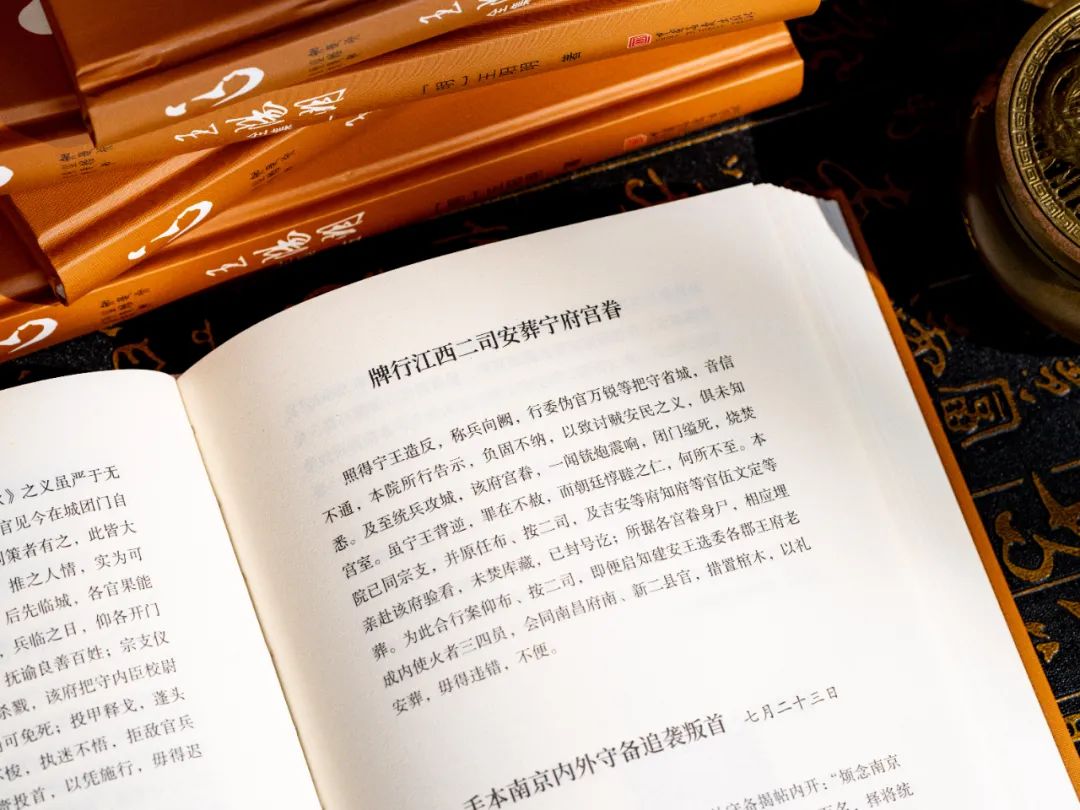 王阳明
心
［明］王阳明 著
王阳明
心
》之义虽严于无
官见今在城团门自
策者有之，此皆大
推之人情，实为可
后先临城，各官果能
，兵临之日，仰各开门
，抚谕良善百姓；宗支仪
杀戮，该府把守内臣校尉
可免死；投甲释戈，蓬头
悛，执迷不悟，拒敌官兵
投首，以凭施行，毋得迟
牌行江西二司安葬宁府宫眷
照得宁王造反，称兵向阙，行委伪官万锐等把守省城，音信
不通，本院所行告示，负固不纳，以致讨贼安民之义，俱未知
悉。及至统兵攻城，该府宫眷，一闻铳炮震响，闭门缢死，烧焚
宫室。虽宁王背逆，罪在不赦，而朝廷惇睦之仁，何所不至。本
院已同宗支，并原任布、按二司，及吉安等府知府等官伍文定等
亲赴该府验看，未焚库藏，已封号讫；所据各宫眷身尸，相应埋
葬。为此合行案仰布、按二司，即便启知建安王选委各郡王府老
成内使火者三四员，会同南昌府南、新二县官，措置棺木，以礼
安葬，毋得违错，不便。
手本南京内外守备追袭叛首 七月二十三日
守备揭帖内开：“烦念南京
名，择将统